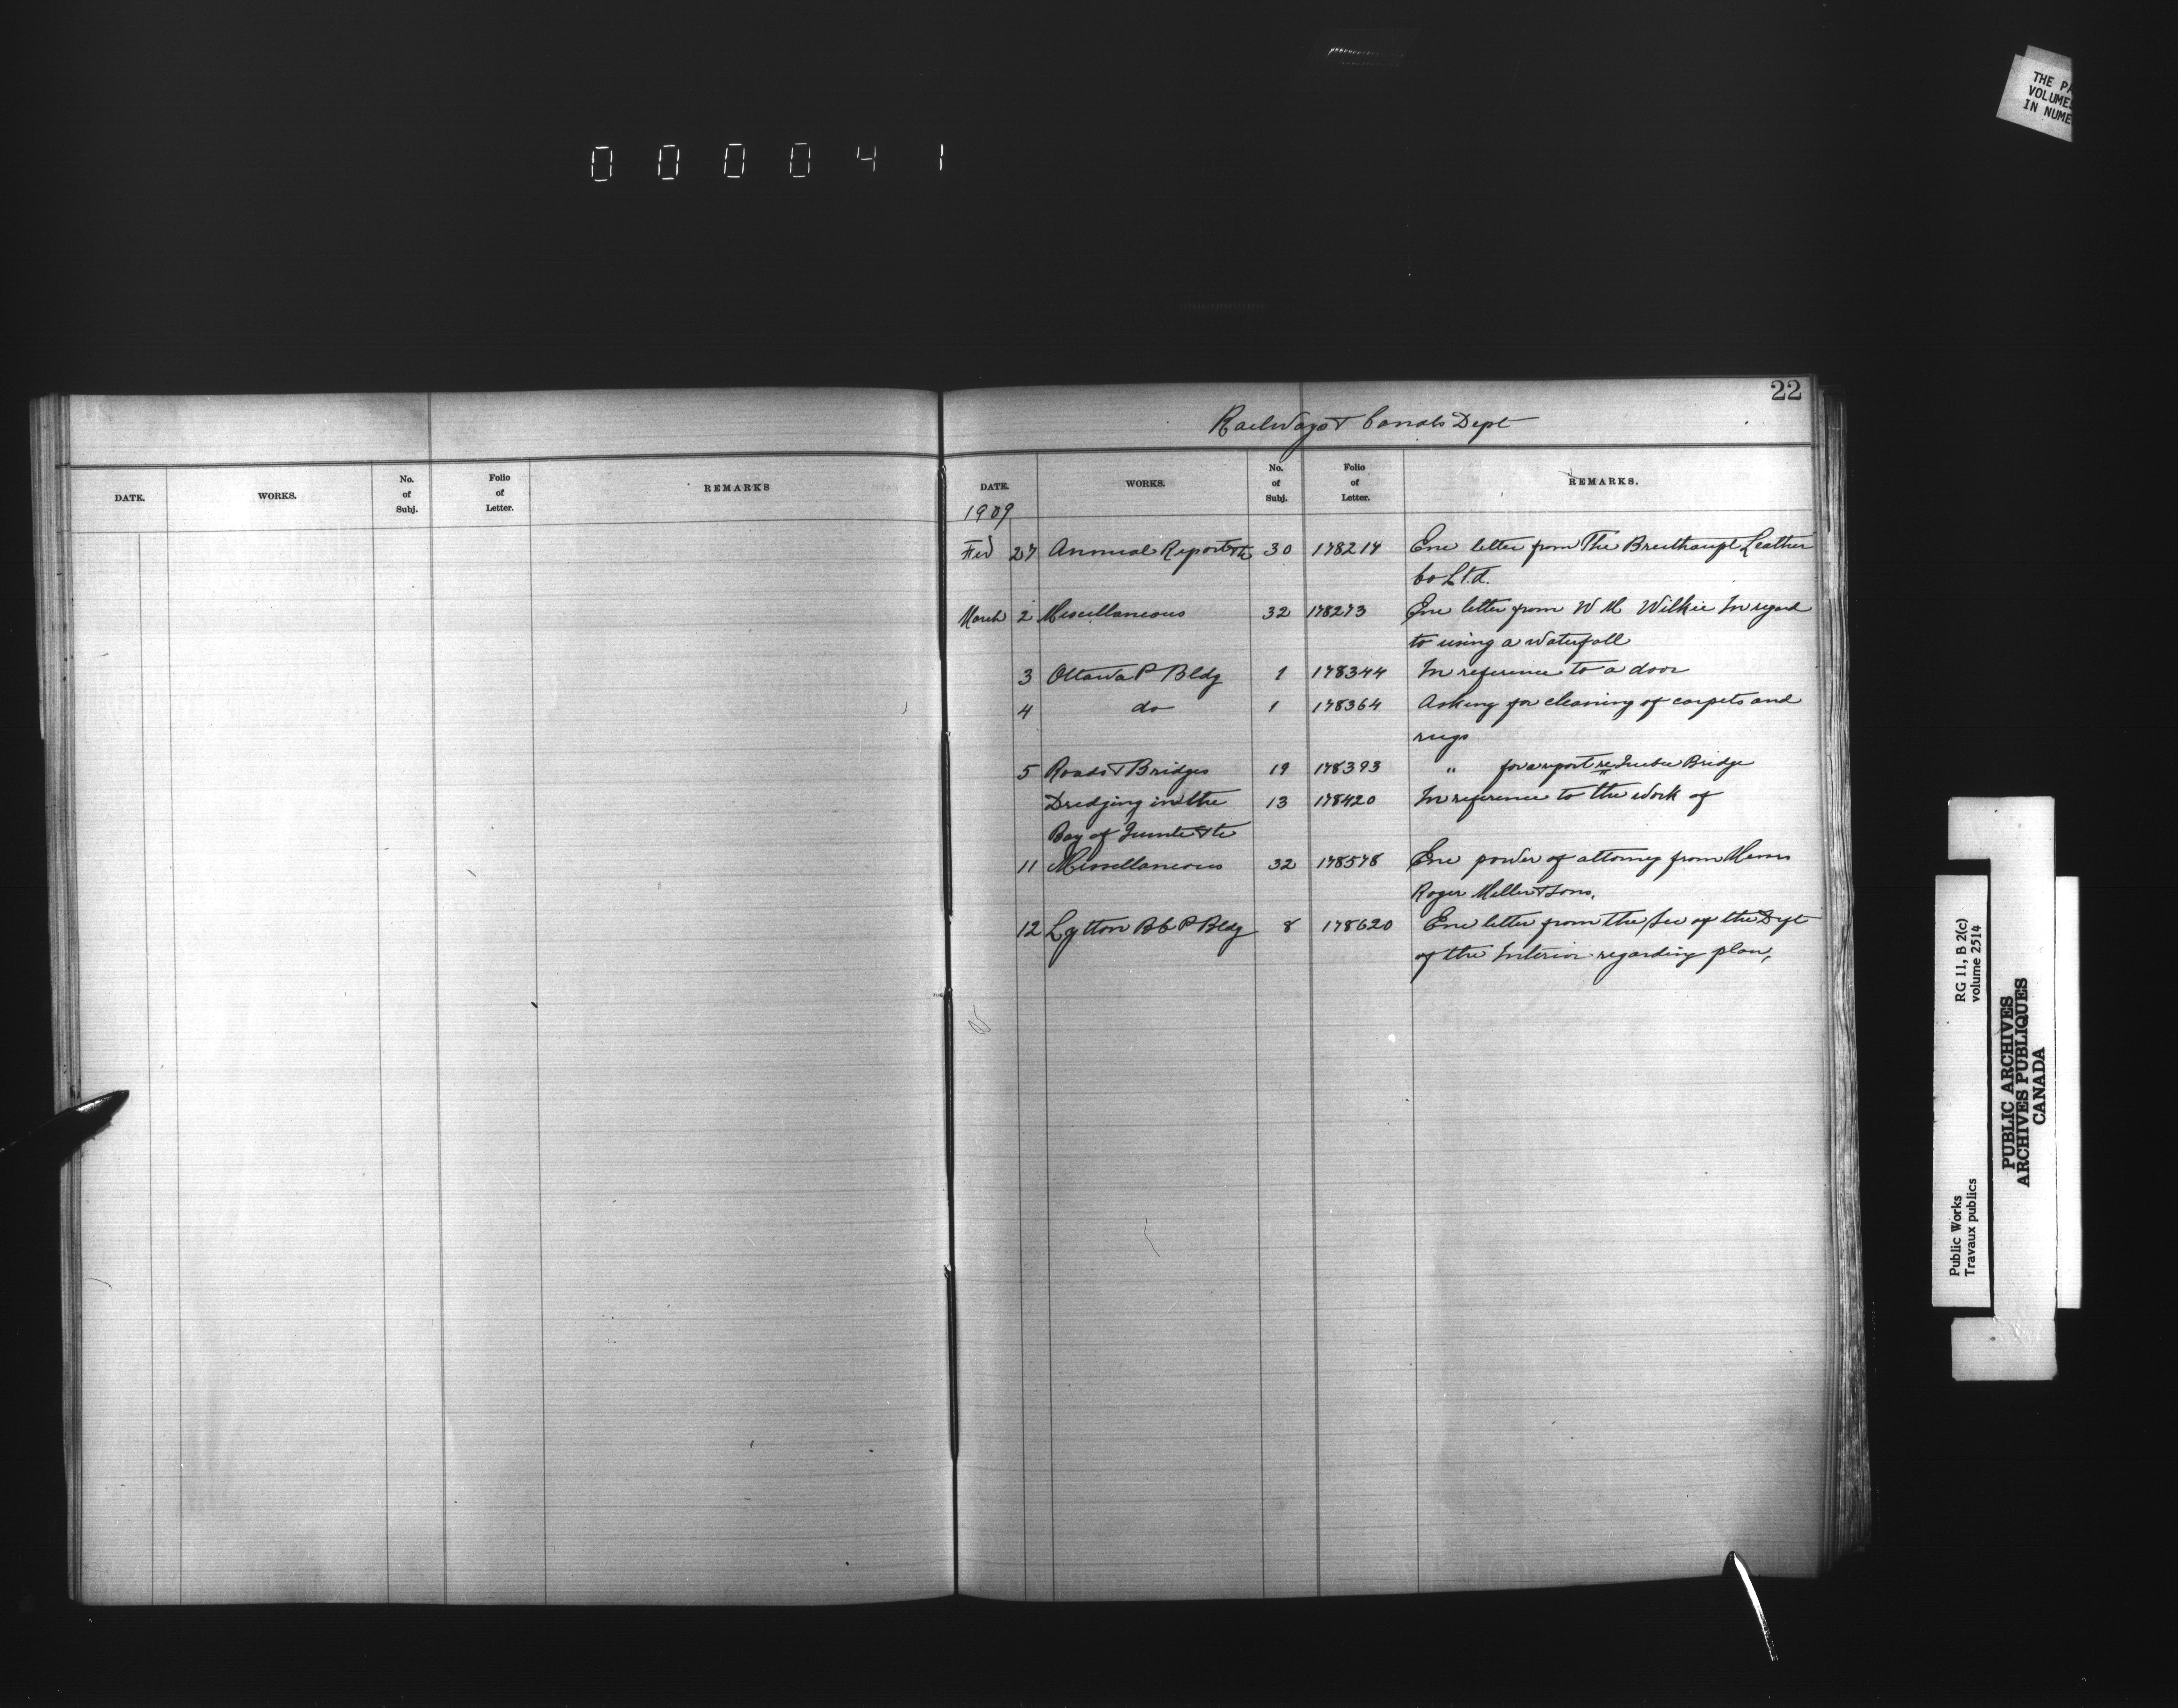 000041
THE PA
VOLUME
IN NUME
22
Railways & Canals Dept
DATE. WORKS. No. of Subj. Folio of Letter. REMARKS
DATE. WORKS. No. of Subj. Folio of Letter. REMARKS.
1909
Feb 27 Annual Report &c 30 178214 Enc letter from The Breithaupt Leather
Co Ltd.
March 2 Miscellaneous 32 178273 Enc letter from W M Wilkie In regard
to using a waterfall
3 Ottawa P Bldg 1 178344 In reference to a door
4 do 1 178364 Asking for cleaning of carpets and
rugs
5 Roads & Bridges 19 178393 " for a report re Quebec Bridge
Dredging in the 13 178420 In reference to the work of
Bay of Quinte &c
11 Miscellaneous 32 178578 Enc power of attorney from Messrs
Roger Miller & Sons.
12 Lytton BC P Bldg 8 178620 Enc letter from the Sec of the Dept
of the Interior regarding plan,
Public Works
Travaux publics
RG 11, B 2(c)
volume 2514
PUBLIC ARCHIVES
ARCHIVES PUBLIQUES
CANADA